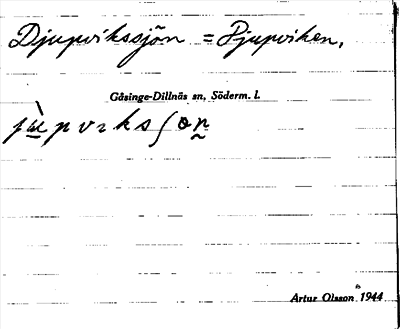 Djupvikssjön = Djupviken.
Gåsinge-Dillnäs sn, Söderm. l.
jùpvɩksʃөn
Artur Olsson 1944